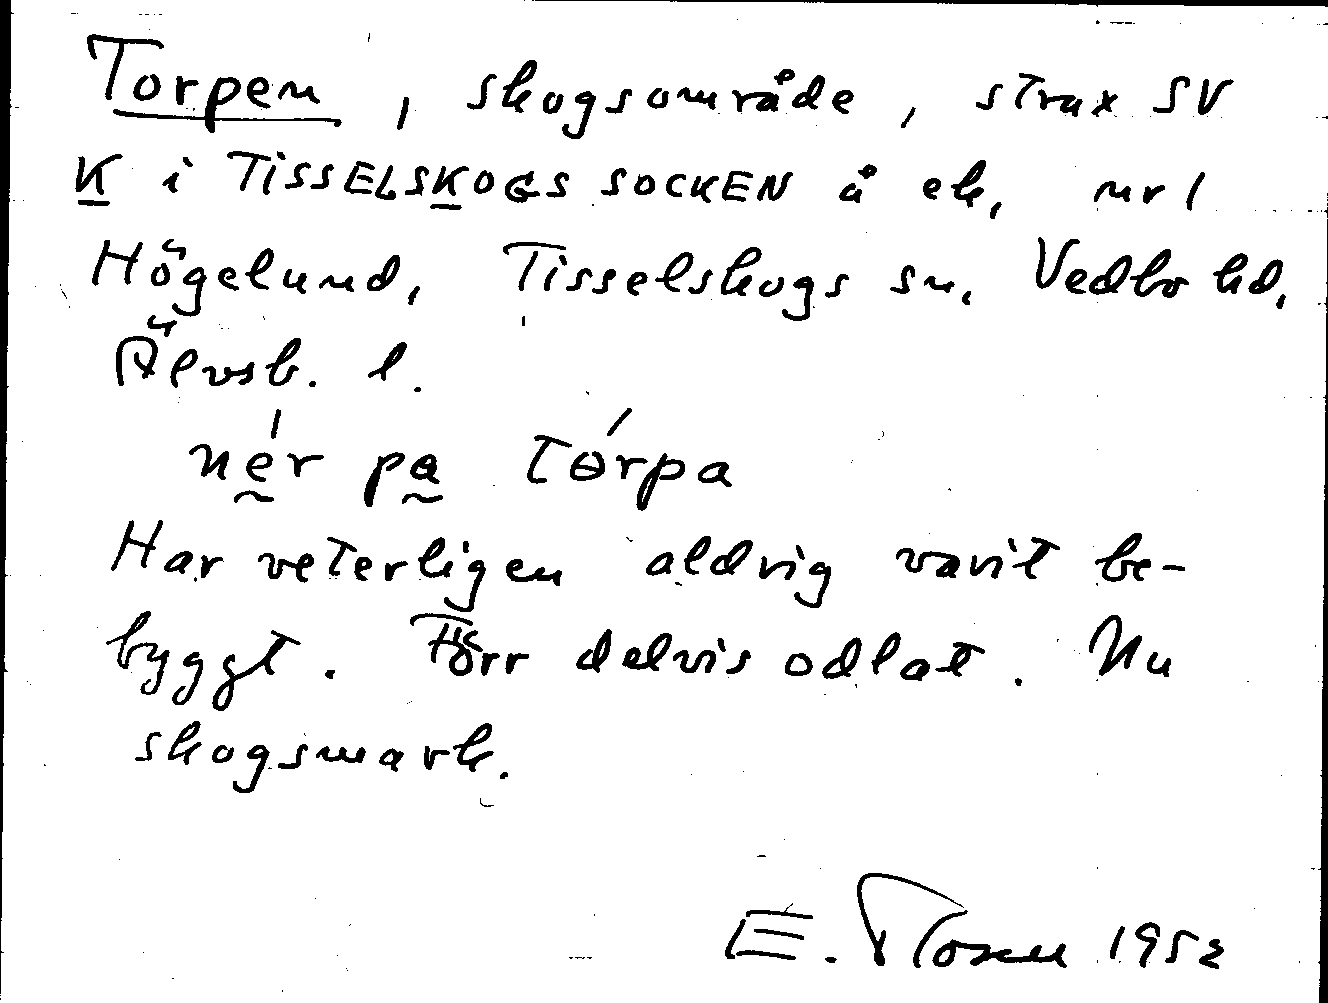 Torpen, skogsområde, strax SV
K i TISSELSKOGS SOCKEN å ek, nr 1
Högelund, Tisselskogs sn, Vedbo hd,
Älvsb. l.
nér pa tórpa
Har veterligen aldrig varit be-
byggt. Förr delvis odlat. Nu
skogsmark.
E. 1952